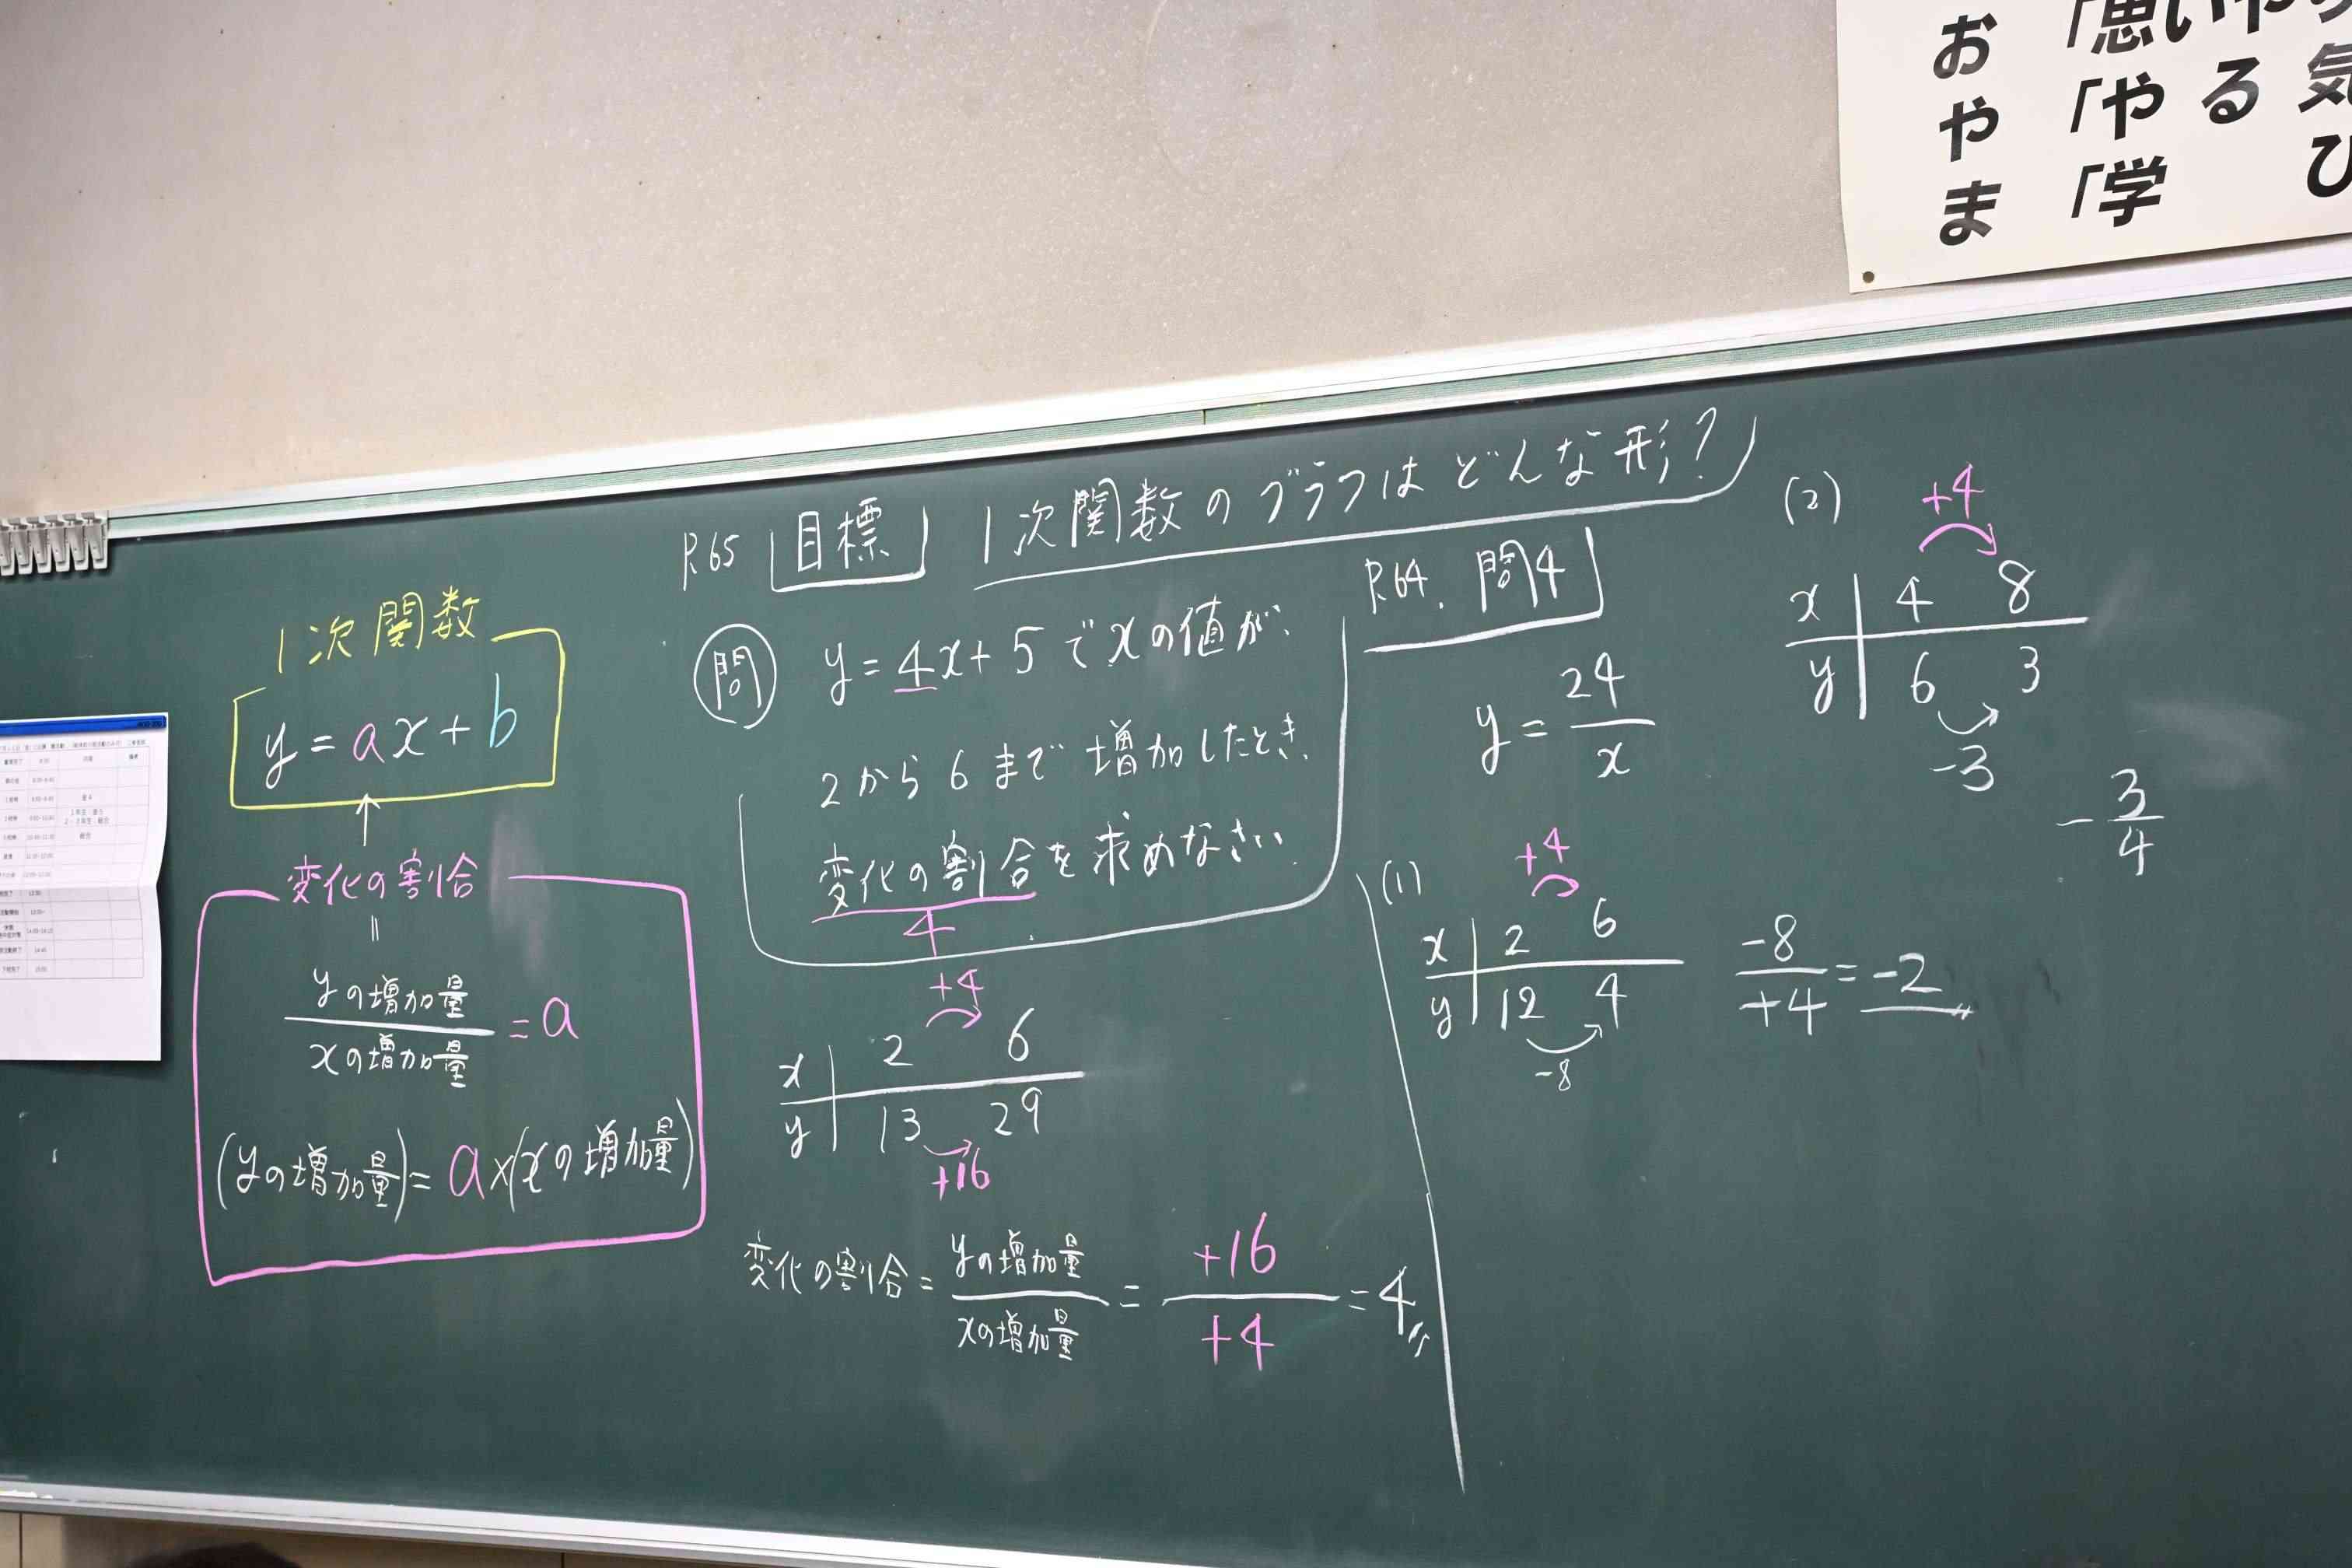 お 「思いや
や 「やる気
ま 「学 ひ
P.65 目標 1次関数のグラフはどんな形?
1次関数
y = ax + b
↑
変化の割合
=
yの増加量 / xの増加量 = a
(yの増加量) = a × (xの増加量)
問 y = 4x + 5 で xの値が、
2から6まで増加したとき、
変化の割合を求めなさい。
4
+4
x 2 6
y 13 29
+16
変化の割合 = yの増加量 / xの増加量 = +16 / +4 = 4
P.64. 問4
y = 24 / x
(1)
+4
x 2 6
y 12 4
-8
-8 / +4 = -2
(2)
+4
x 4 8
y 6 3
-3
- 3 / 4